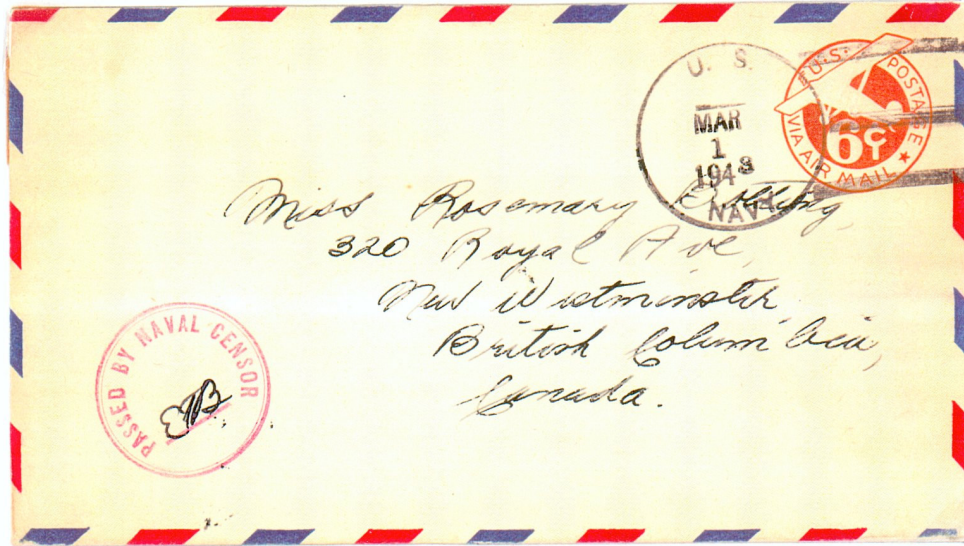 U. S.
MAR
1
1943
NAVY
U.S. POSTAGE
6¢
VIA AIR MAIL
Miss Rosemary
320 Royal Ave,
New Westminster,
British Columbia,
Canada.
PASSED BY NAVAL CENSOR
EB